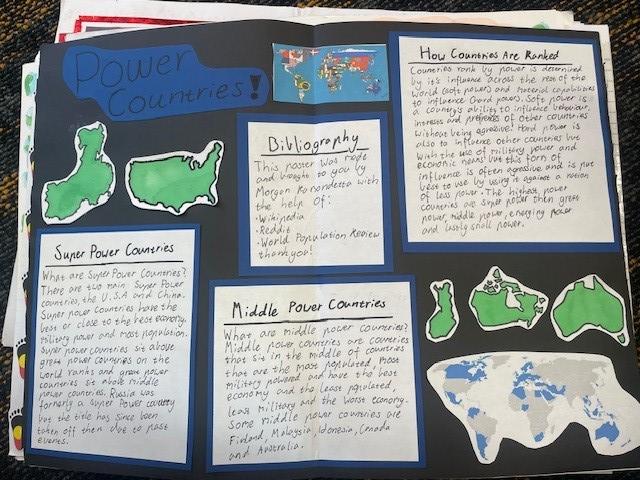 Power
Countries!
How Countries Are Ranked
Countries rank by power is determined
by it's influence across the rest of the
world (soft power) and material capabilities
to influence (hard power). Soft power is
a country's ability to influence behaviour,
interests and preferences of other countries
without being agressive. Hard power is
also to influence other countries but
with the use of military power and
economic means but this form of
influence is often agressive and is put
best to use by using it against a nation
of less power. The highest power
countries are super power then great
power, middle power, emerging power
and lastly small power.
Bibliography
This poster was made
and brought to you by
Morgan with
the help of:
·Wikipedia
·Reddit
·World Population Review
thankyou!
Super Power Countries
What are Super Power Countries?
There are two main Super Power
countries, the U.S.A and China.
Super power countries have the
best or close to the best economy,
military power and most population.
Super power countries sit above
great power countries on the
world ranks and great power
countries sit above middle
power countries. Russia was
formerly a Super Power country
but the title has since been
taken off them due to past
events.
Middle Power Countries
What are middle power countries?
Middle power countries are countries
that sit in the middle of countries
that are the most populated, most
military powered and have the best
economy and the least populated,
least military and the worst economy.
Some middle power countries are
Finland, Malaysia, Idonesia, Canada
and Australia.